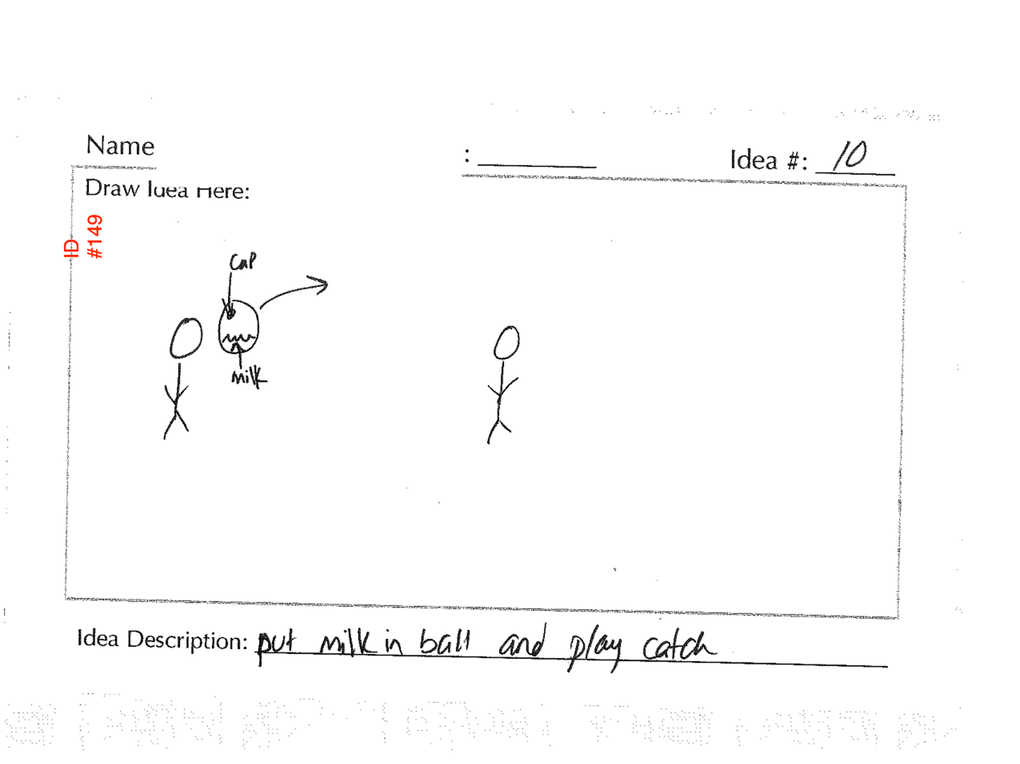 Name
: Idea #: 10
Draw Idea Here:
ID
#149
cap
milk
Idea Description: put milk in ball and play catch